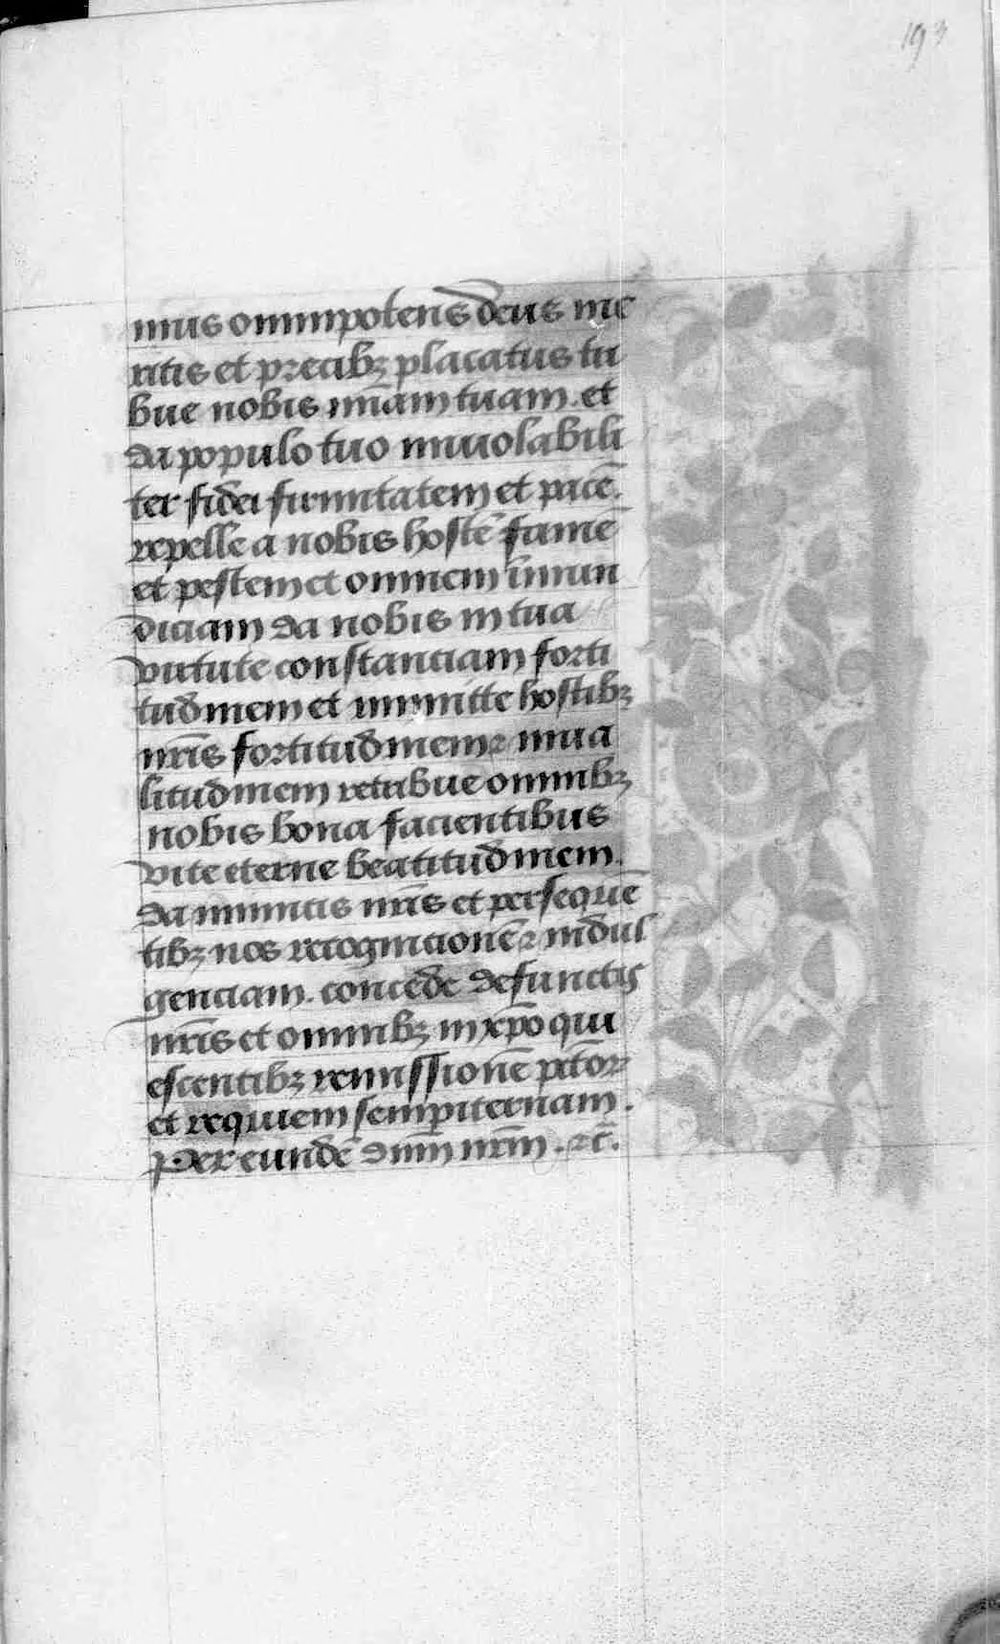 193
mus omnipotens deus me
ritis et precibꝫ placatus tri
bue nobis mi͞am tuam. et
da populo tuo inviolabili
ter fidei firmitatem et pacē.
repelle a nobis hostē famē
et pestem et omnem īmun
diciam da nobis in tua
virtute constanciam forti
tudinem et immitte hostibꝫ
nr͞is fortitudinem ⁊ inua
litudinem retribue omnibꝫ
nobis bona facientibus
vite eterne beatitudinem.
da inimicis nr͞is et persequē
tibꝫ nos recognicionē ⁊ indul
genciam. concede defunctis
nr͞is et omnibꝫ in xp͞o qui
escentibꝫ remissionē pc͞torꝝ
et requiem sempiternam.
Per eundē dn͞m nr͞m. ⁊c͞.